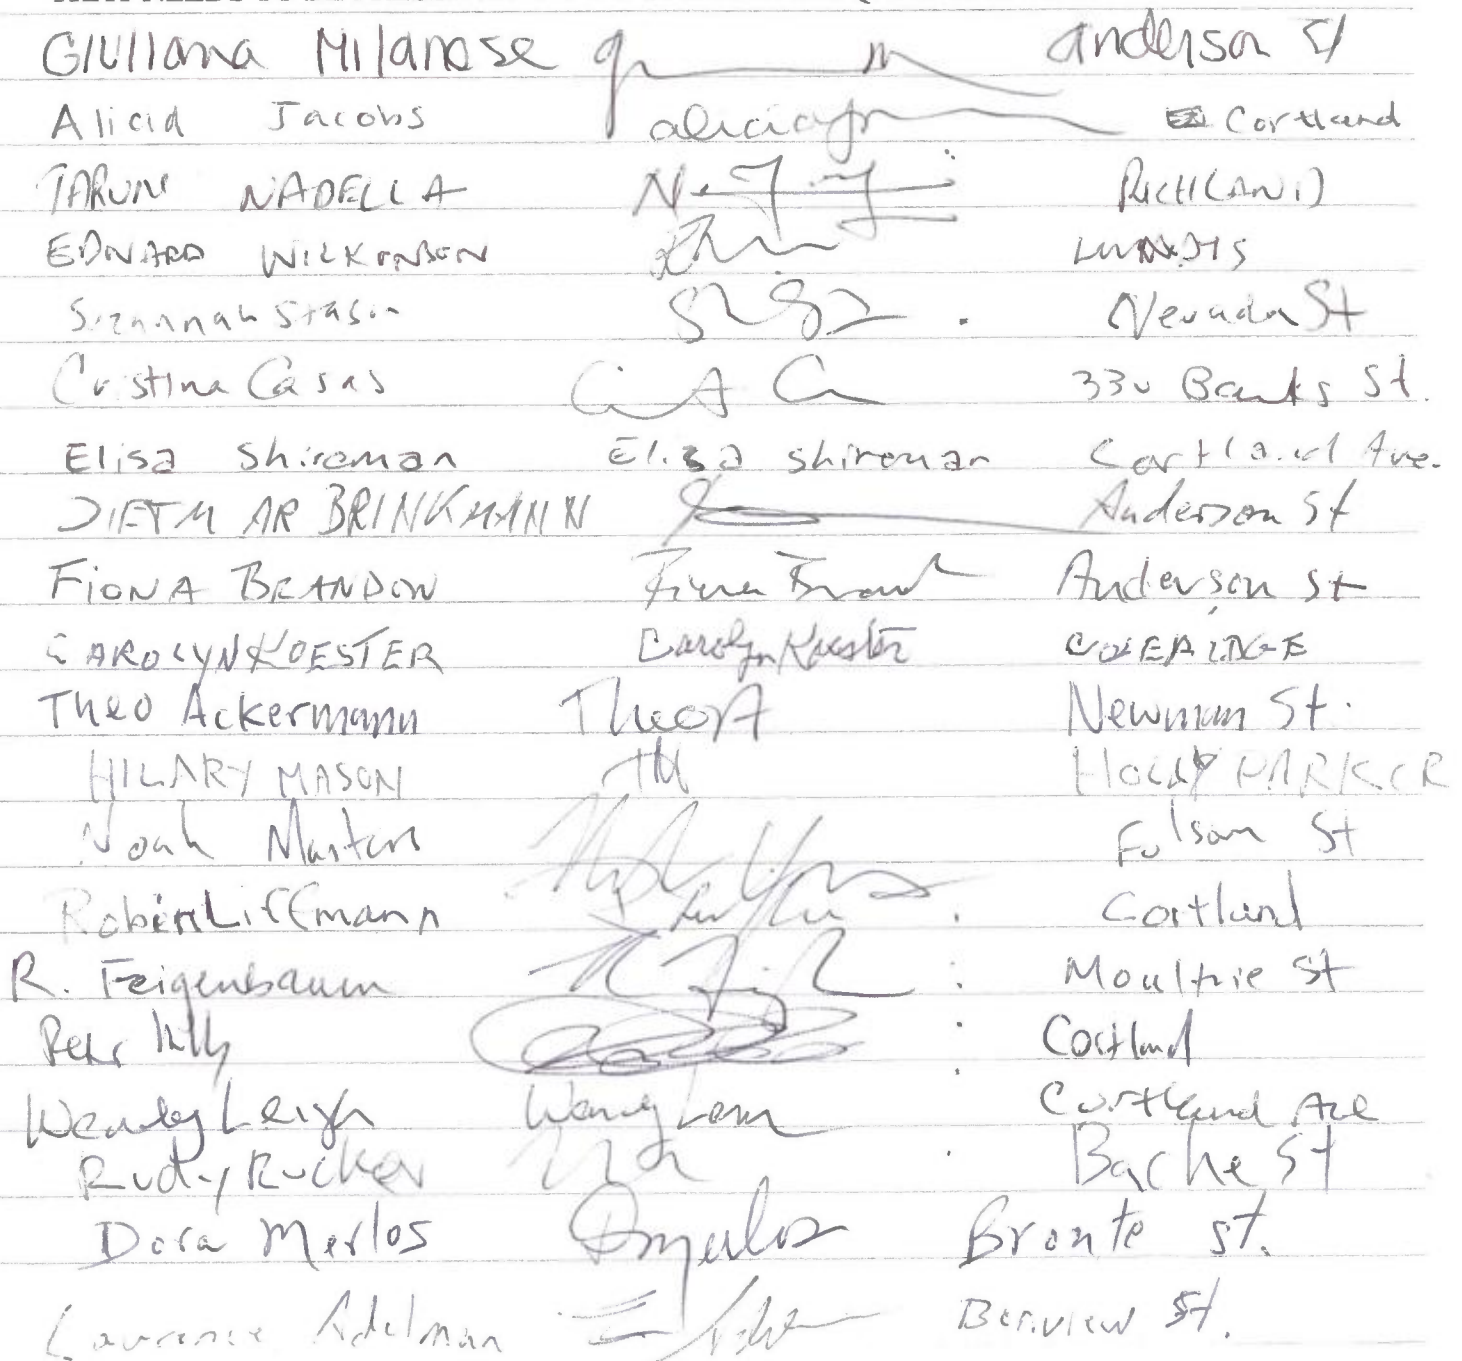 Giuliana Milanese Anderson St
Alicia Jacobs Cortland
TARUN NADELLA RICHLAND
EDWARD WILKINSON LUNDYS
Suzannah Stason Nevada St
Cristina Casas 330 Banks St.
Elisa Shireman Elisa Shireman Cortland Ave.
DIETMAR BRINKMANN Anderson St
FIONA BRANDON Fiona Anderson St
CAROLYN KOESTER Carolyn Koester COLERIDGE
Theo Ackermann TheoA Newman St.
HILARY MASON HM HOLLY PARKER
Noah Masters Folsom St
Robert Liffmann Cortland
R. Feigenbaum Moultrie St
Peter Cortland
Wendy Leigh Wendy Cortland Ave
Rudy Rucker Bache St
Dora Merlos DMerlos Bronte St.
Lawrence Adelman Bonview St.